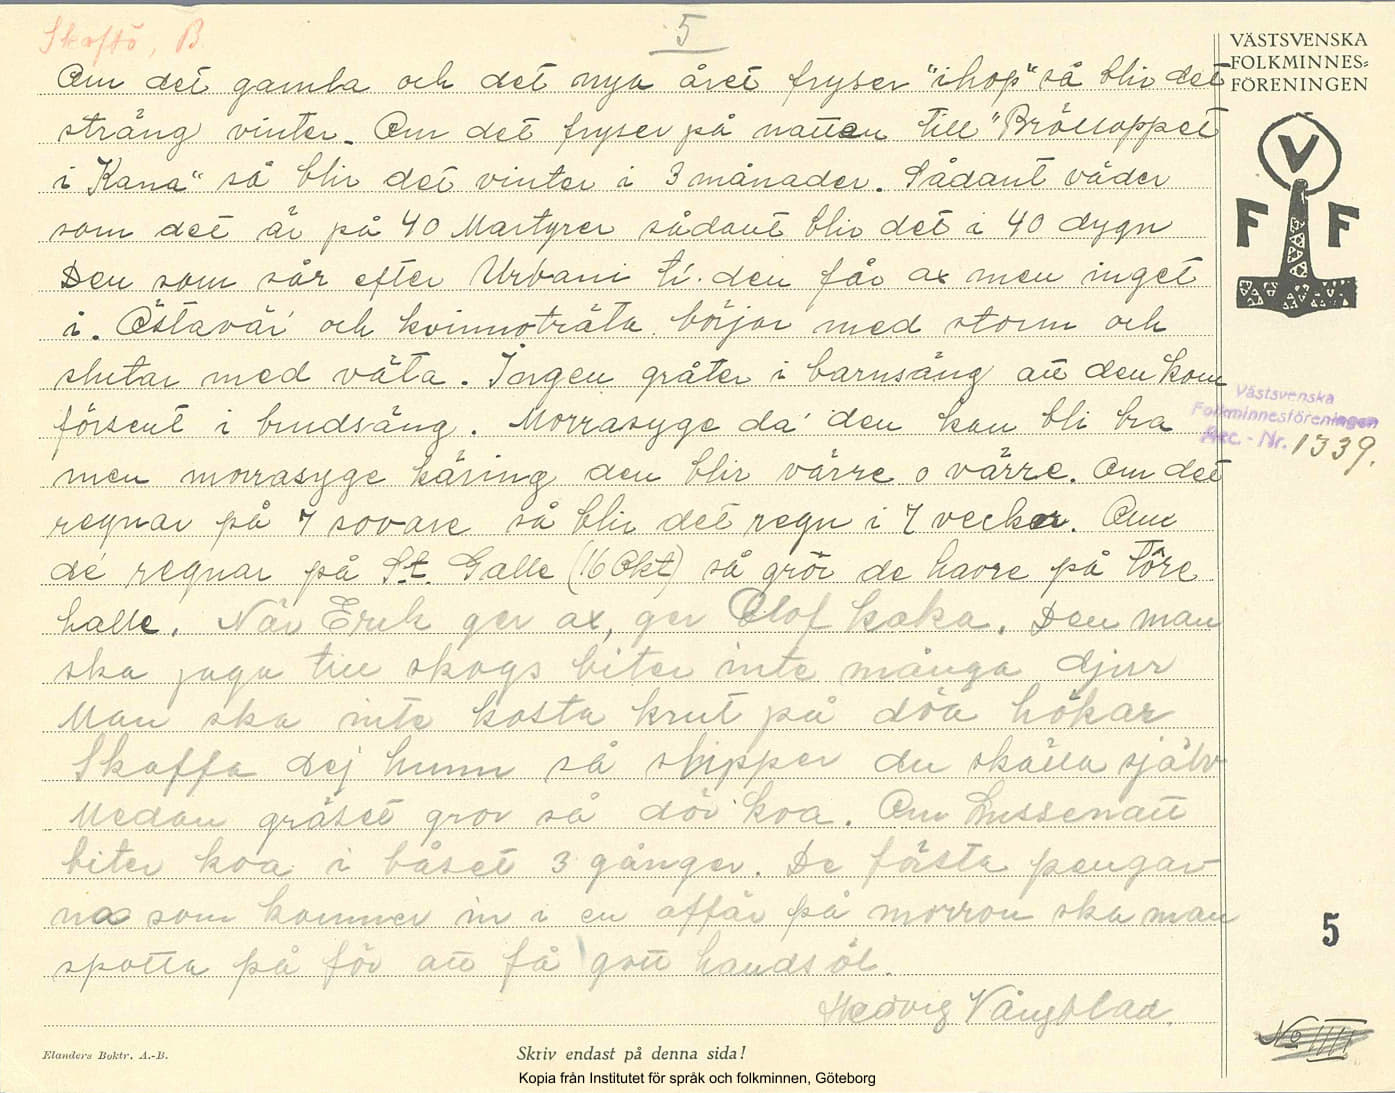 Skaftö, B
5
VÄSTSVENSKA
FOLKMINNES=
FÖRENINGEN
V
F F
Om det gamla och det nya året fryser "ihop" så blir det
sträng vinter. Om det fryser på natten till "Brölloppet
i Kana" så blir det vinter i 3 månader. Sådant väder
som det är på 40 Martyrer sådant blir det i 40 dygn
Den som sår efter Urbani ti. den får ax men inget
i. Östavär och kvinnoträta börjar med storm och
slutar med väta. Ingen gråter i barnsäng att den kom
försent i brudsäng. Morrasyge då den kan bli bra
men morrasyge käring den blir värre o värre. Om det
regnar på 7 sovare så blir det regn i 7 veckor. Om
de regnar på St. Galle (16 Okt) så grör de havre på Töre
halle. När Erik ger ax, ger Olof kaka. Den man
ska jaga till skogs biter inte många djur
Man ska inte kosta krut på döa hökar
Skaffa dej hunn så slipper du skälla själv
Medan gräset gror så dör koa. Om Lussenatt
biter koa i båset 3 gånger. De första pengar
na som kommer in i en affär på morron ska man
spotta på för att få gott handsöl.
Hedvig Vångblad.
Västsvenska
Folkminnesföreningen
Acc. - Nr. 1339.
5
No IIII
Elanders Boktr. A.-B.
Skriv endast på denna sida!
Kopia från Institutet för språk och folkminnen, Göteborg